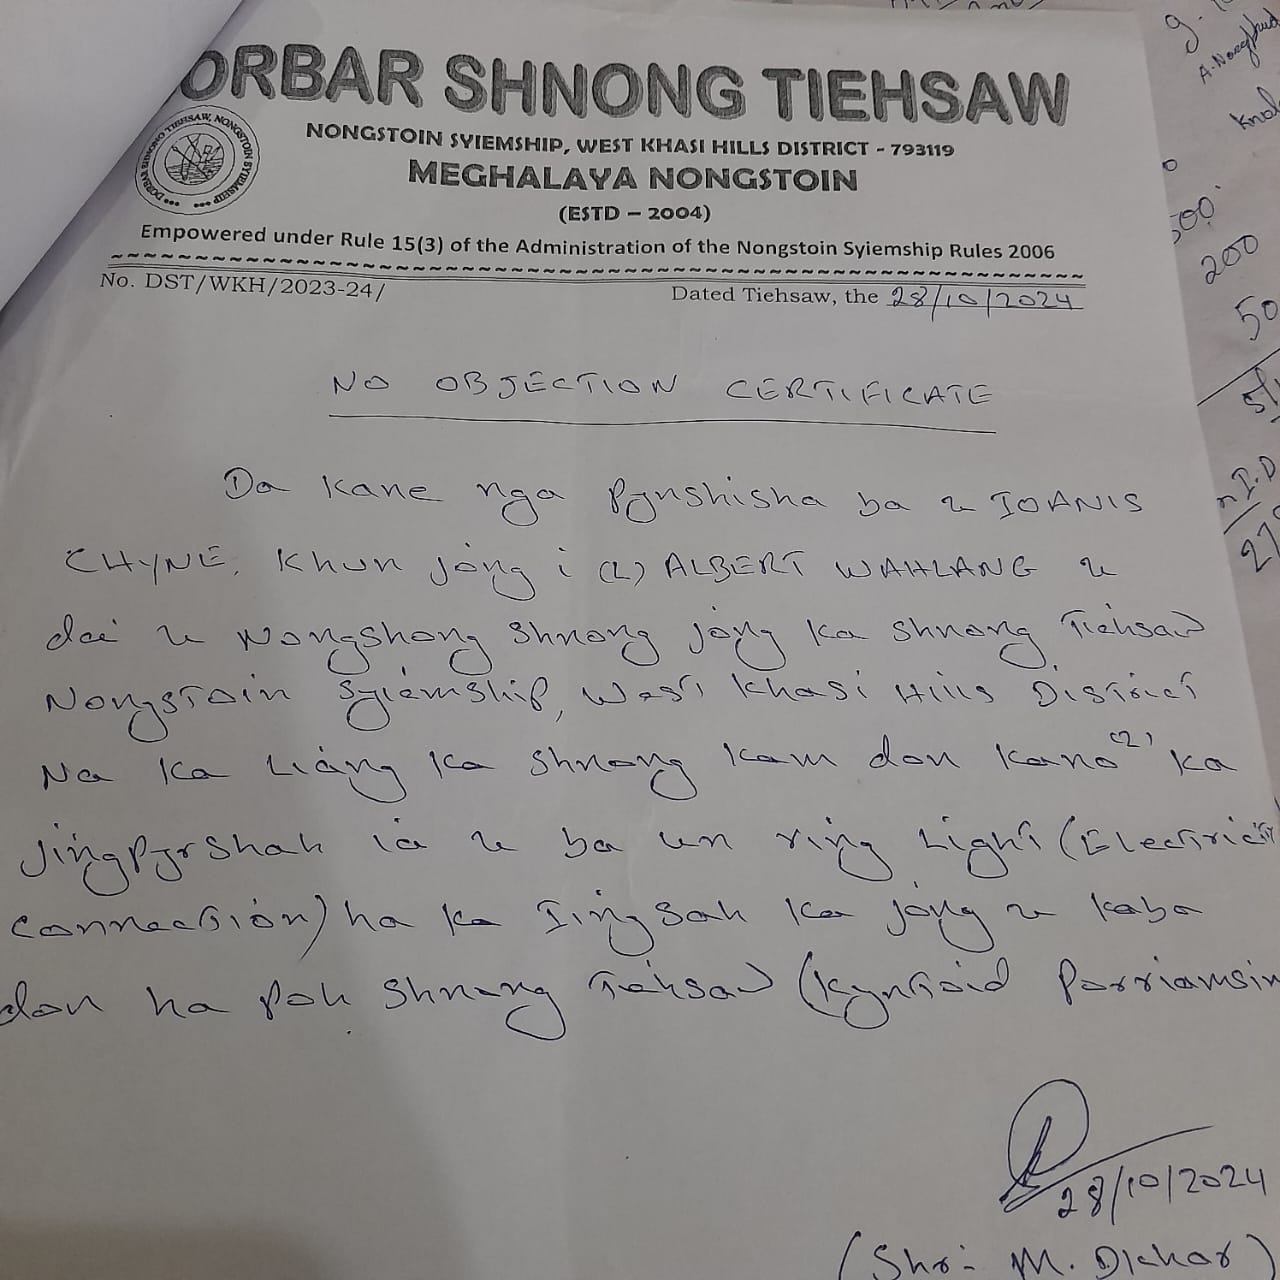 DORBAR SHNONG TIEHSAW
NONGSTOIN SYIEMSHIP, WEST KHASI HILLS DISTRICT - 793119
MEGHALAYA NONGSTOIN
(ESTD – 2004)
Empowered under Rule 15(3) of the Administration of the Nongstoin Syiemship Rules 2006
No. DST/WKH/2023-24/
Dated Tiehsaw, the 28/10/2024
NO OBJECTION CERTIFICATE
Da kane nga pynshisha ba u IOANIS
CHYNE, Khun jong i (L) ALBERT WAHLANG u
dei u Nongshong shnong jong ka shnong Tiehsaw
Nongstoin Syiemship, West Khasi Hills District
Na ka liang ka shnong kam don kano (2) ka
jingpyrshah ia u ba un ring Light (Electricity
connection) ha ka Iingsah ka jong u kaba
don ha poh shnong Tiehsaw (Kyntoid Porriamsin
28/10/2024
(Shri M. Dkhar)
g.
A. Nongbud
500
200
50
27